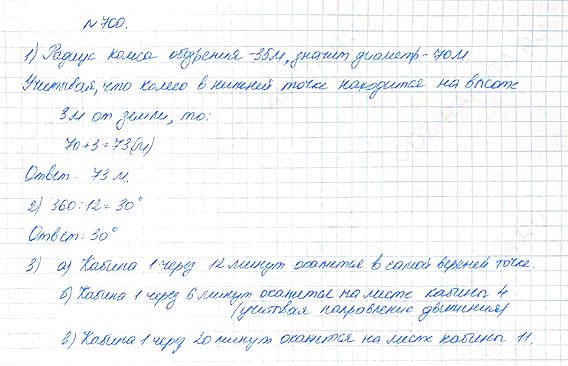 № 700.
1) Радиус колеса обозрения - 35 м, значит диаметр - 70 м.
Учитывая, что колесо в нижней точке находится на высоте
3 м от земли, то:
70 + 3 = 73 (м)
Ответ: 73 м.
2) 360 : 12 = 30°
Ответ: 30°
3) а) Кабина 1 через 12 минут окажется в самой верхней точке.
б) Кабина 1 через 6 минут окажется на месте кабины 4
(учитывая направление движения)
в) Кабина 1 через 20 минут окажется на месте кабины 11.